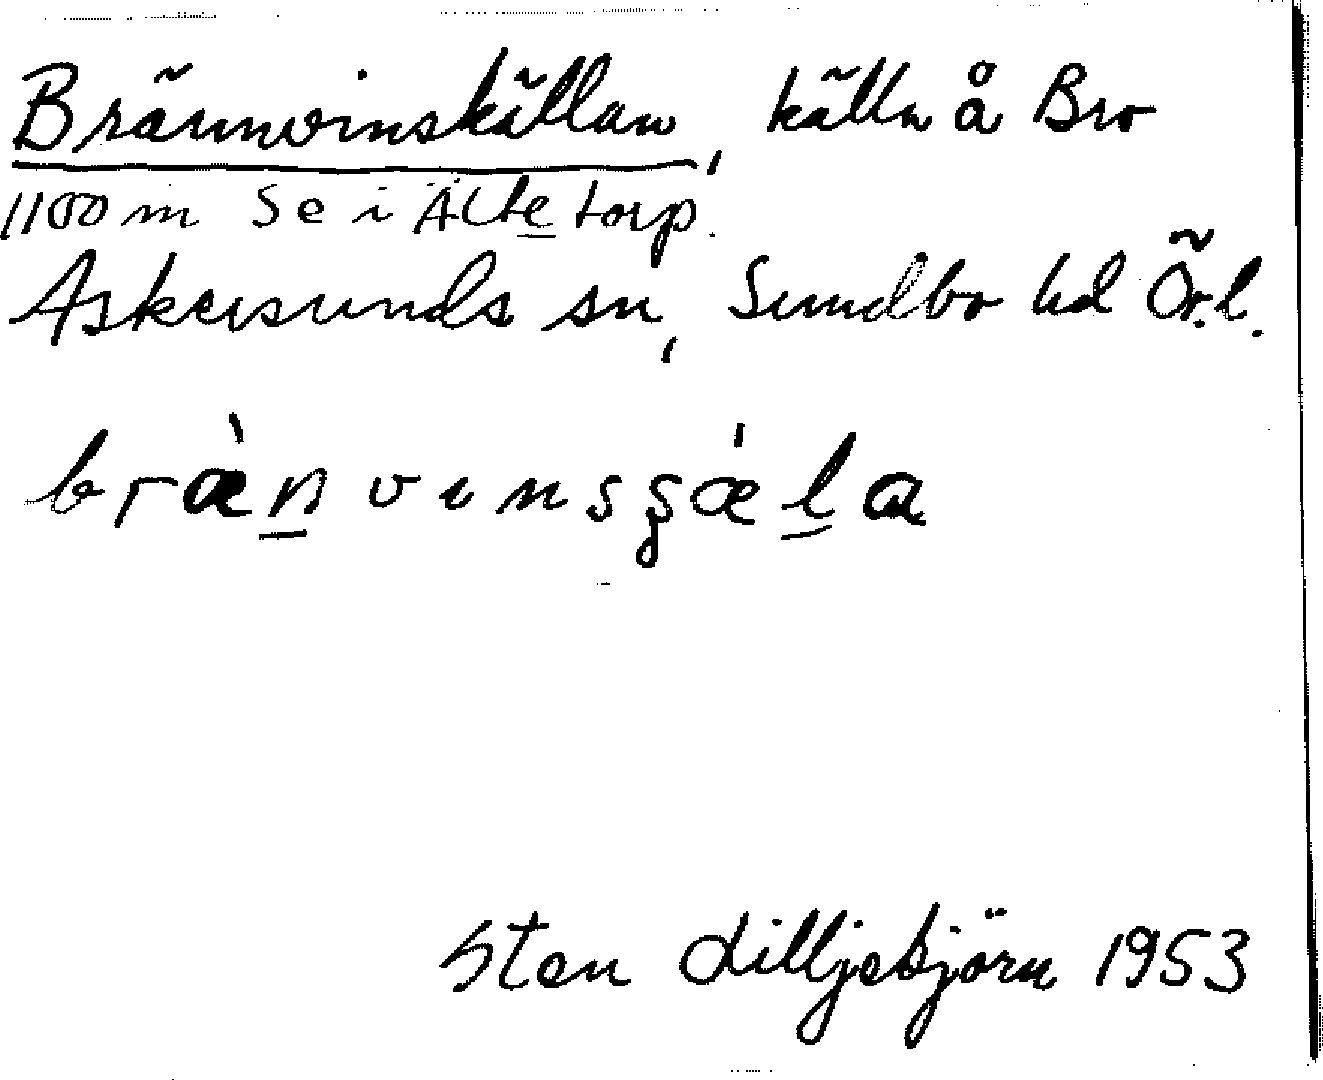 Brännvinskällan, källa å Bro
1100 m Se i Ältetorp.
Askersunds sn, Sundbo hd Ör.l.
bræ̀n̲vinsʂǽl̲a
Sten Lilljebjörn 1953